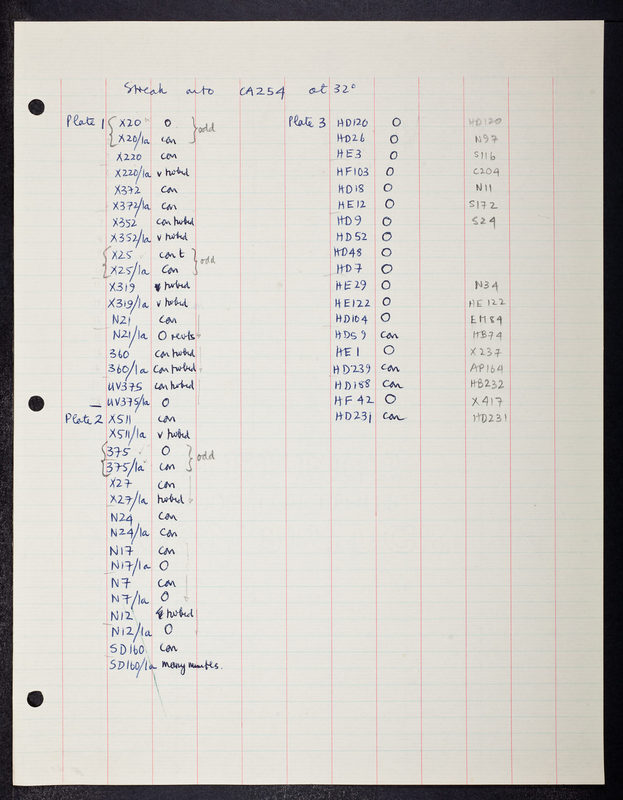 Streak onto CA254 at 32°
Plate 1 X20 O
X20/1a con odd
X220 con
X220/1a v turbid
X372 con
X372/1a con
X352 con turbid
X352/1a v turbid
X25 con t
X25/1a con odd
X319 turbid
X319/1a v turbid
N21 con
N21/1a O reverts
360 con turbid
360/1a con turbid
UV375 con turbid
UV375/1a O
Plate 2 X511 con
X511/1a v turbid
375 O
375/1a con odd
X27 con
X27/1a turbid
N24 con
N24/1a con
N17 con
N17/1a O
N7 con
N7/1a O
N12 turbid
N12/1a O
SD160 con
SD160/1a many minutes.
Plate 3 HD120 O HD120
HD26 O N97
HE3 O S116
HF103 O C204
HD18 O N11
HE12 O S172
HD9 O S24
HD52 O
HD48 O
HD7 O
HE29 O N34
HE122 O HE122
HD104 O EM84
HD59 con HB74
HE1 O X237
HD239 con AP164
HD188 con HB232
HF42 O X417
HD231 con HD231